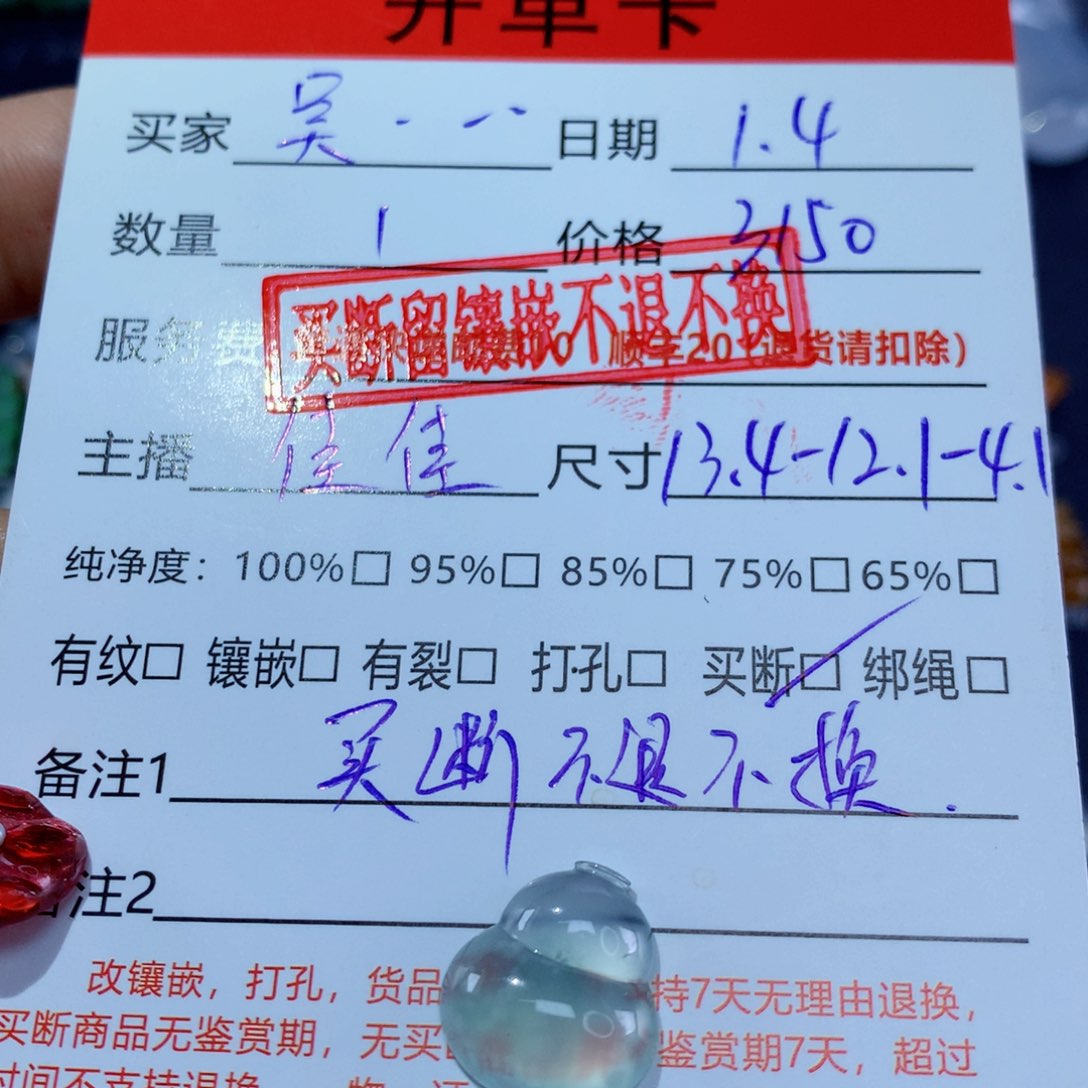 开单卡
买家 吴 日期 1.4
数量 1 价格 3150
买断留镶嵌不退不换
服务费 顺丰20（退货请扣除）
主播 佳佳 尺寸 13.4-12.1-4.1
纯净度：100%□ 95%□ 85%□ 75%□ 65%□
有纹□ 镶嵌□ 有裂□ 打孔□ 买断□ 绑绳□
备注1 买断不退不换.
注2
改镶嵌，打孔，货品 持7天无理由退换，
买断商品无鉴赏期，无买 鉴赏期7天，超过
时间不支持退换